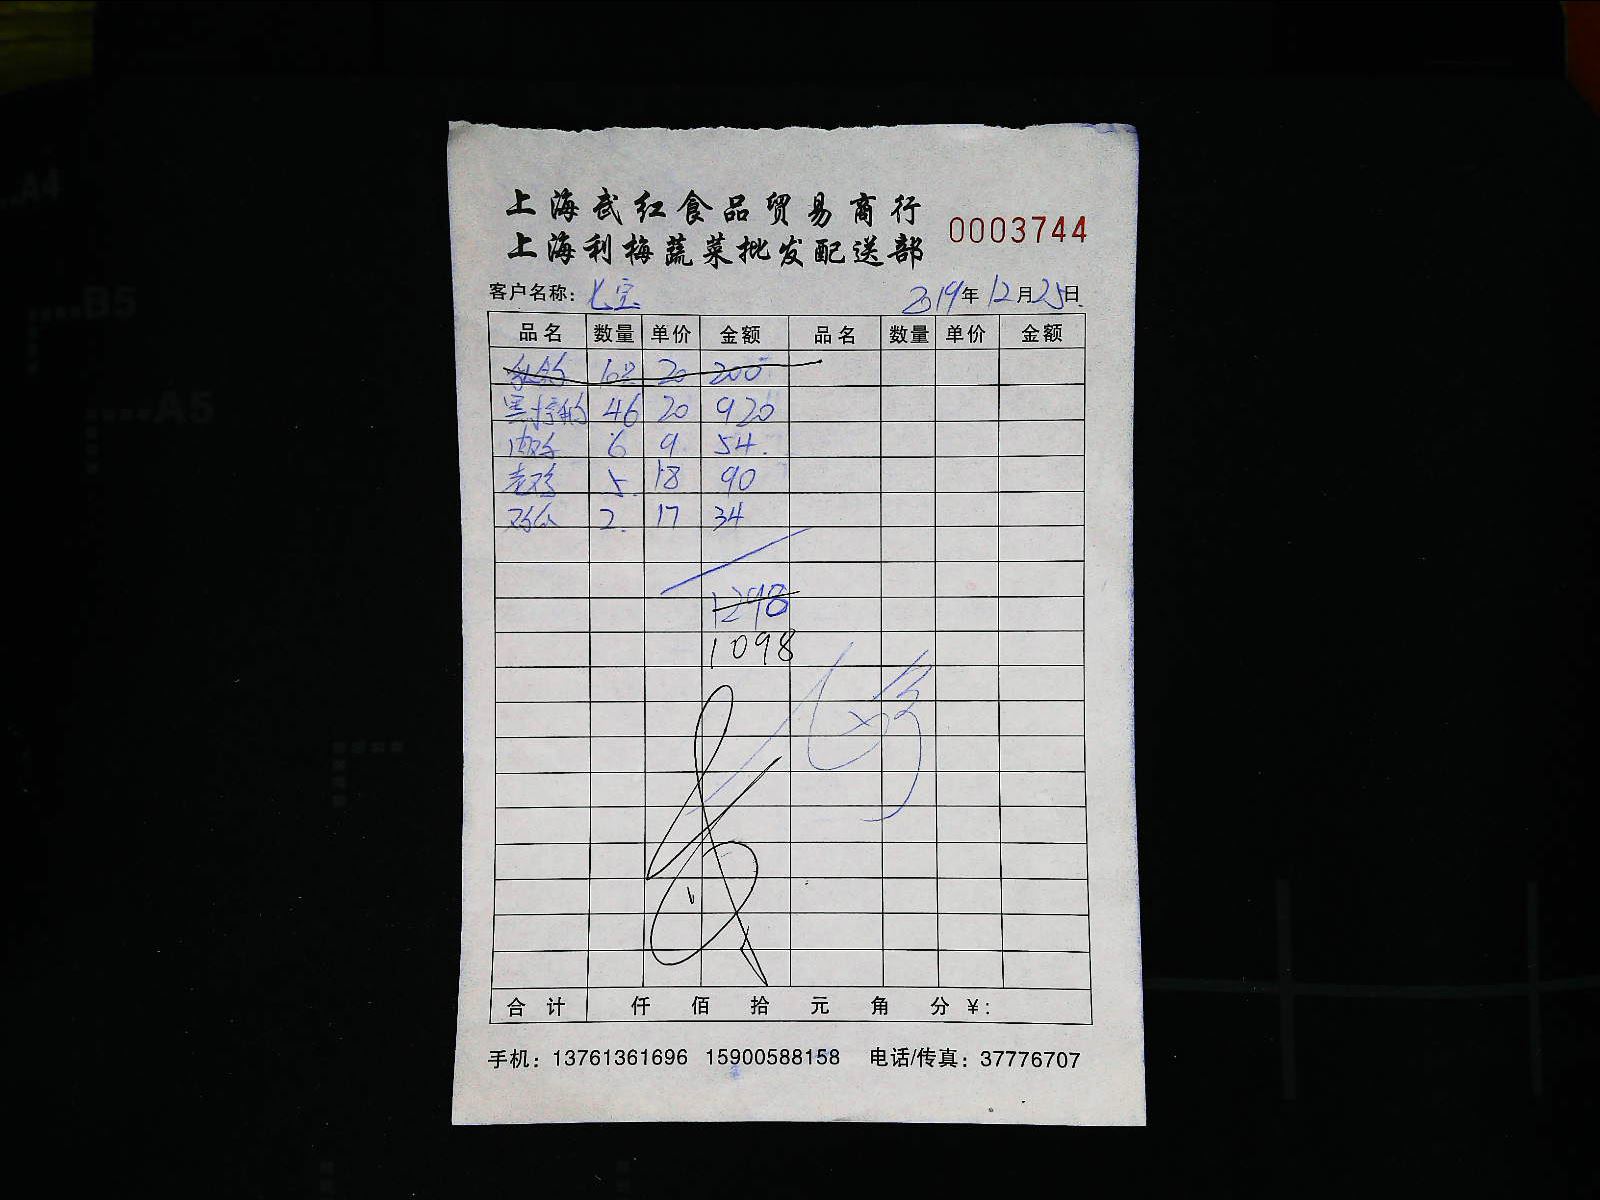 上海武红食品贸易商行
上海利梅蔬菜批发配送部
0003744
客户名称：七宝 2019年12月25日
品名 数量 单价 金额 品名 数量 单价 金额
20 200
46 20 920
6 9 54
老鸡 5 18 90
2 17 34
1298
1098
合计 仟 佰 拾 元 角 分 ¥：
手机：13761361696 15900588158 电话/传真：37776707
A4
B5
A5